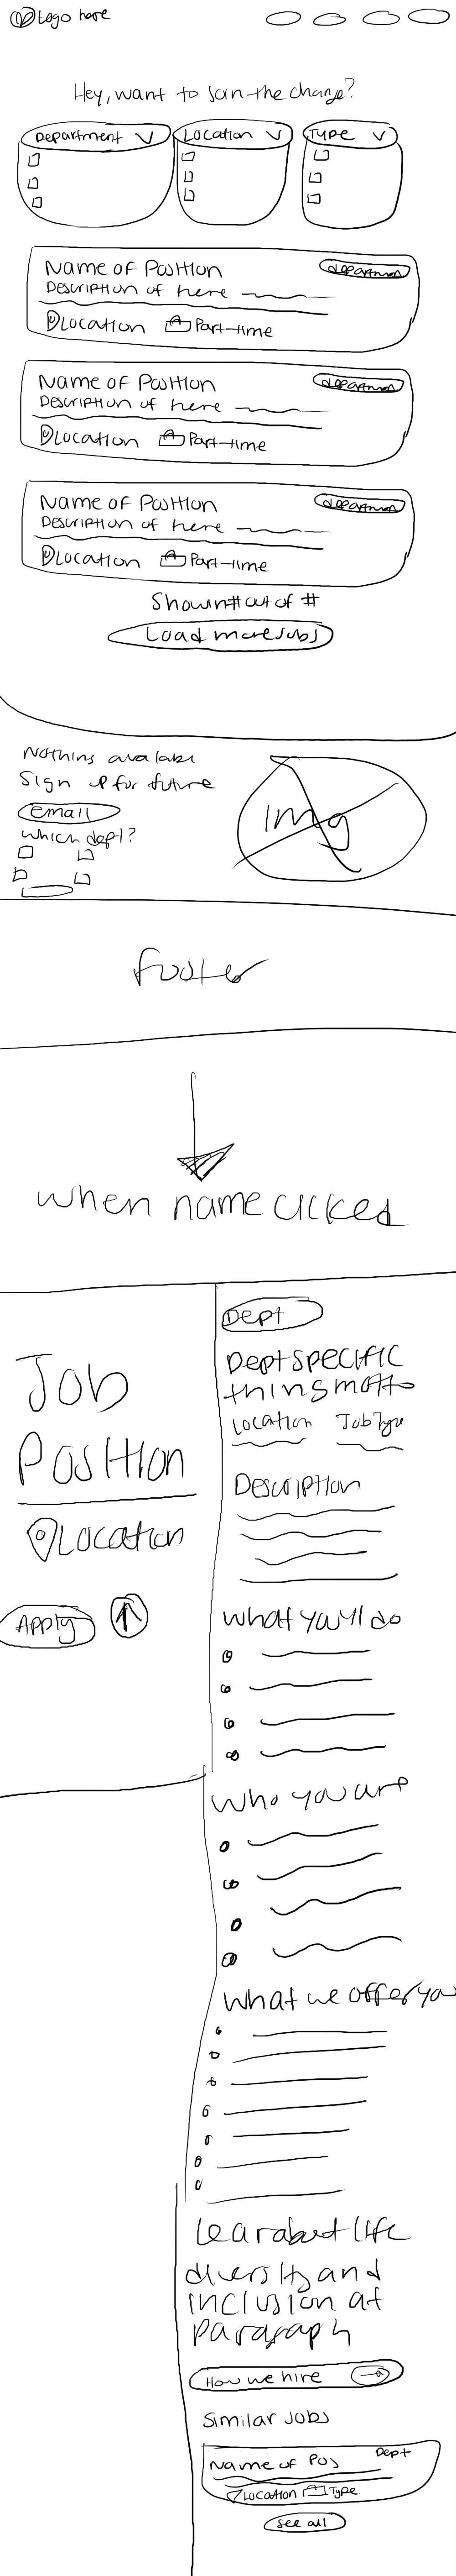 Logo here
Hey, want to join the change?
Department
Location
Type
Name of Position
department
Description of here
Location
Part-time
Name of Position
department
Description of here
Location
Part-time
Name of Position
department
Description of here
Location
Part-time
Showin # out of #
Load more jobs
Nothing availabe
Sign up for future
email
which dept?
img
footer
when name clicked
Job
Position
Location
Apply
Dept
Dept specific
thing motto
Location Job Type
Description
What you'll do
Who you are
What we offer you
Lear about life
diversity and
inclusion at
paragraph
How we hire
Similar Jobs
Name of Pos
Dept
Location
Type
see all